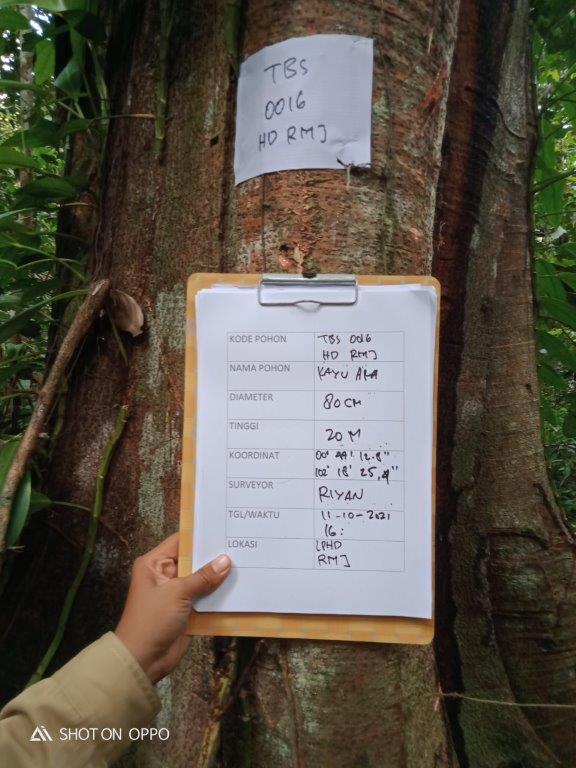 TBS
0016
HD RMJ
KODE POHON TBS 0016
HD RMJ
NAMA POHON KAYU ARA
DIAMETER 80 CM
TINGGI 20 M
KOORDINAT 00°
102° 18' 25,4"
SURVEYOR RIYAN
TGL/WAKTU 11-10-2021
16:
LOKASI LPHD
RMJ
SHOT ON OPPO